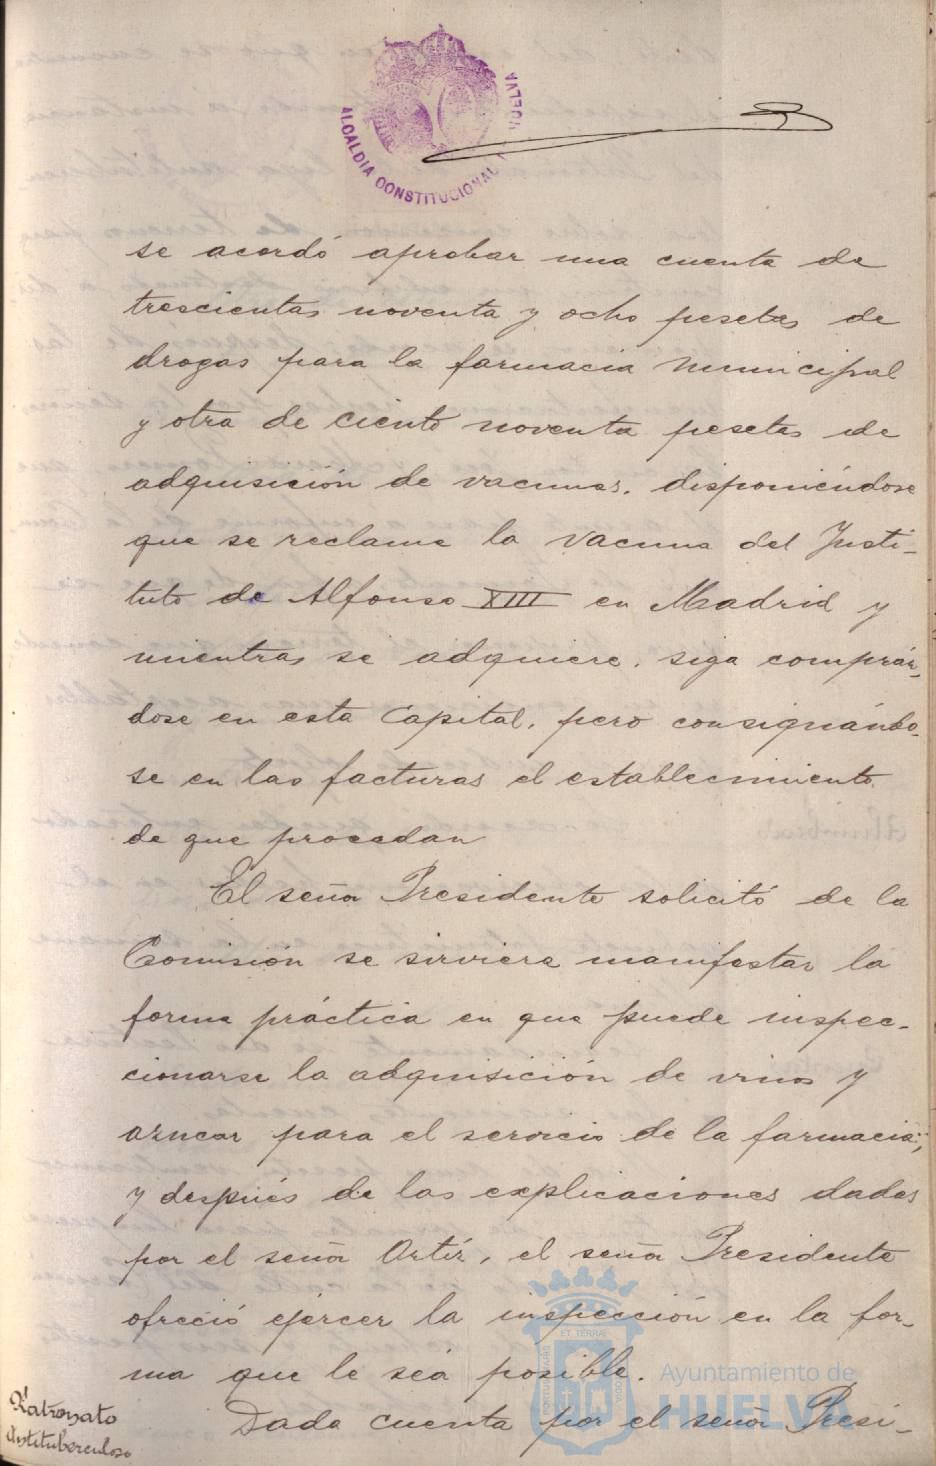 ALCALDIA CONSTITUCIONAL HUELVA
se acordó aprobar una cuenta de
trescientas noventa y ocho pesetas de
drogas para la farmacia municipal
y otra de ciento noventa pesetas de
adquisición de vacunas, disponiéndose
que se reclame la vacuna del Insti-
tuto de Alfonso XIII en Madrid y
mientras se adquiere, siga comprán-
dose en esta Capital, pero consignándo-
se en las facturas el establecimiento
de que procedan
El señor Presidente solicitó de la
Comisión se sirviera manifestar la
forma práctica en que puede inspec-
cionarse la adquisición de vinos y
azucar para el servicio de la farmacia;
y después de las explicaciones dadas
por el señor Ortíz, el señor Presidente
ofreció ejercer la inspección en la for-
ma que le sea posible.
Patronato
Antituberculoso
Dada cuenta por el señor Presi-
Ayuntamiento de
HUELVA